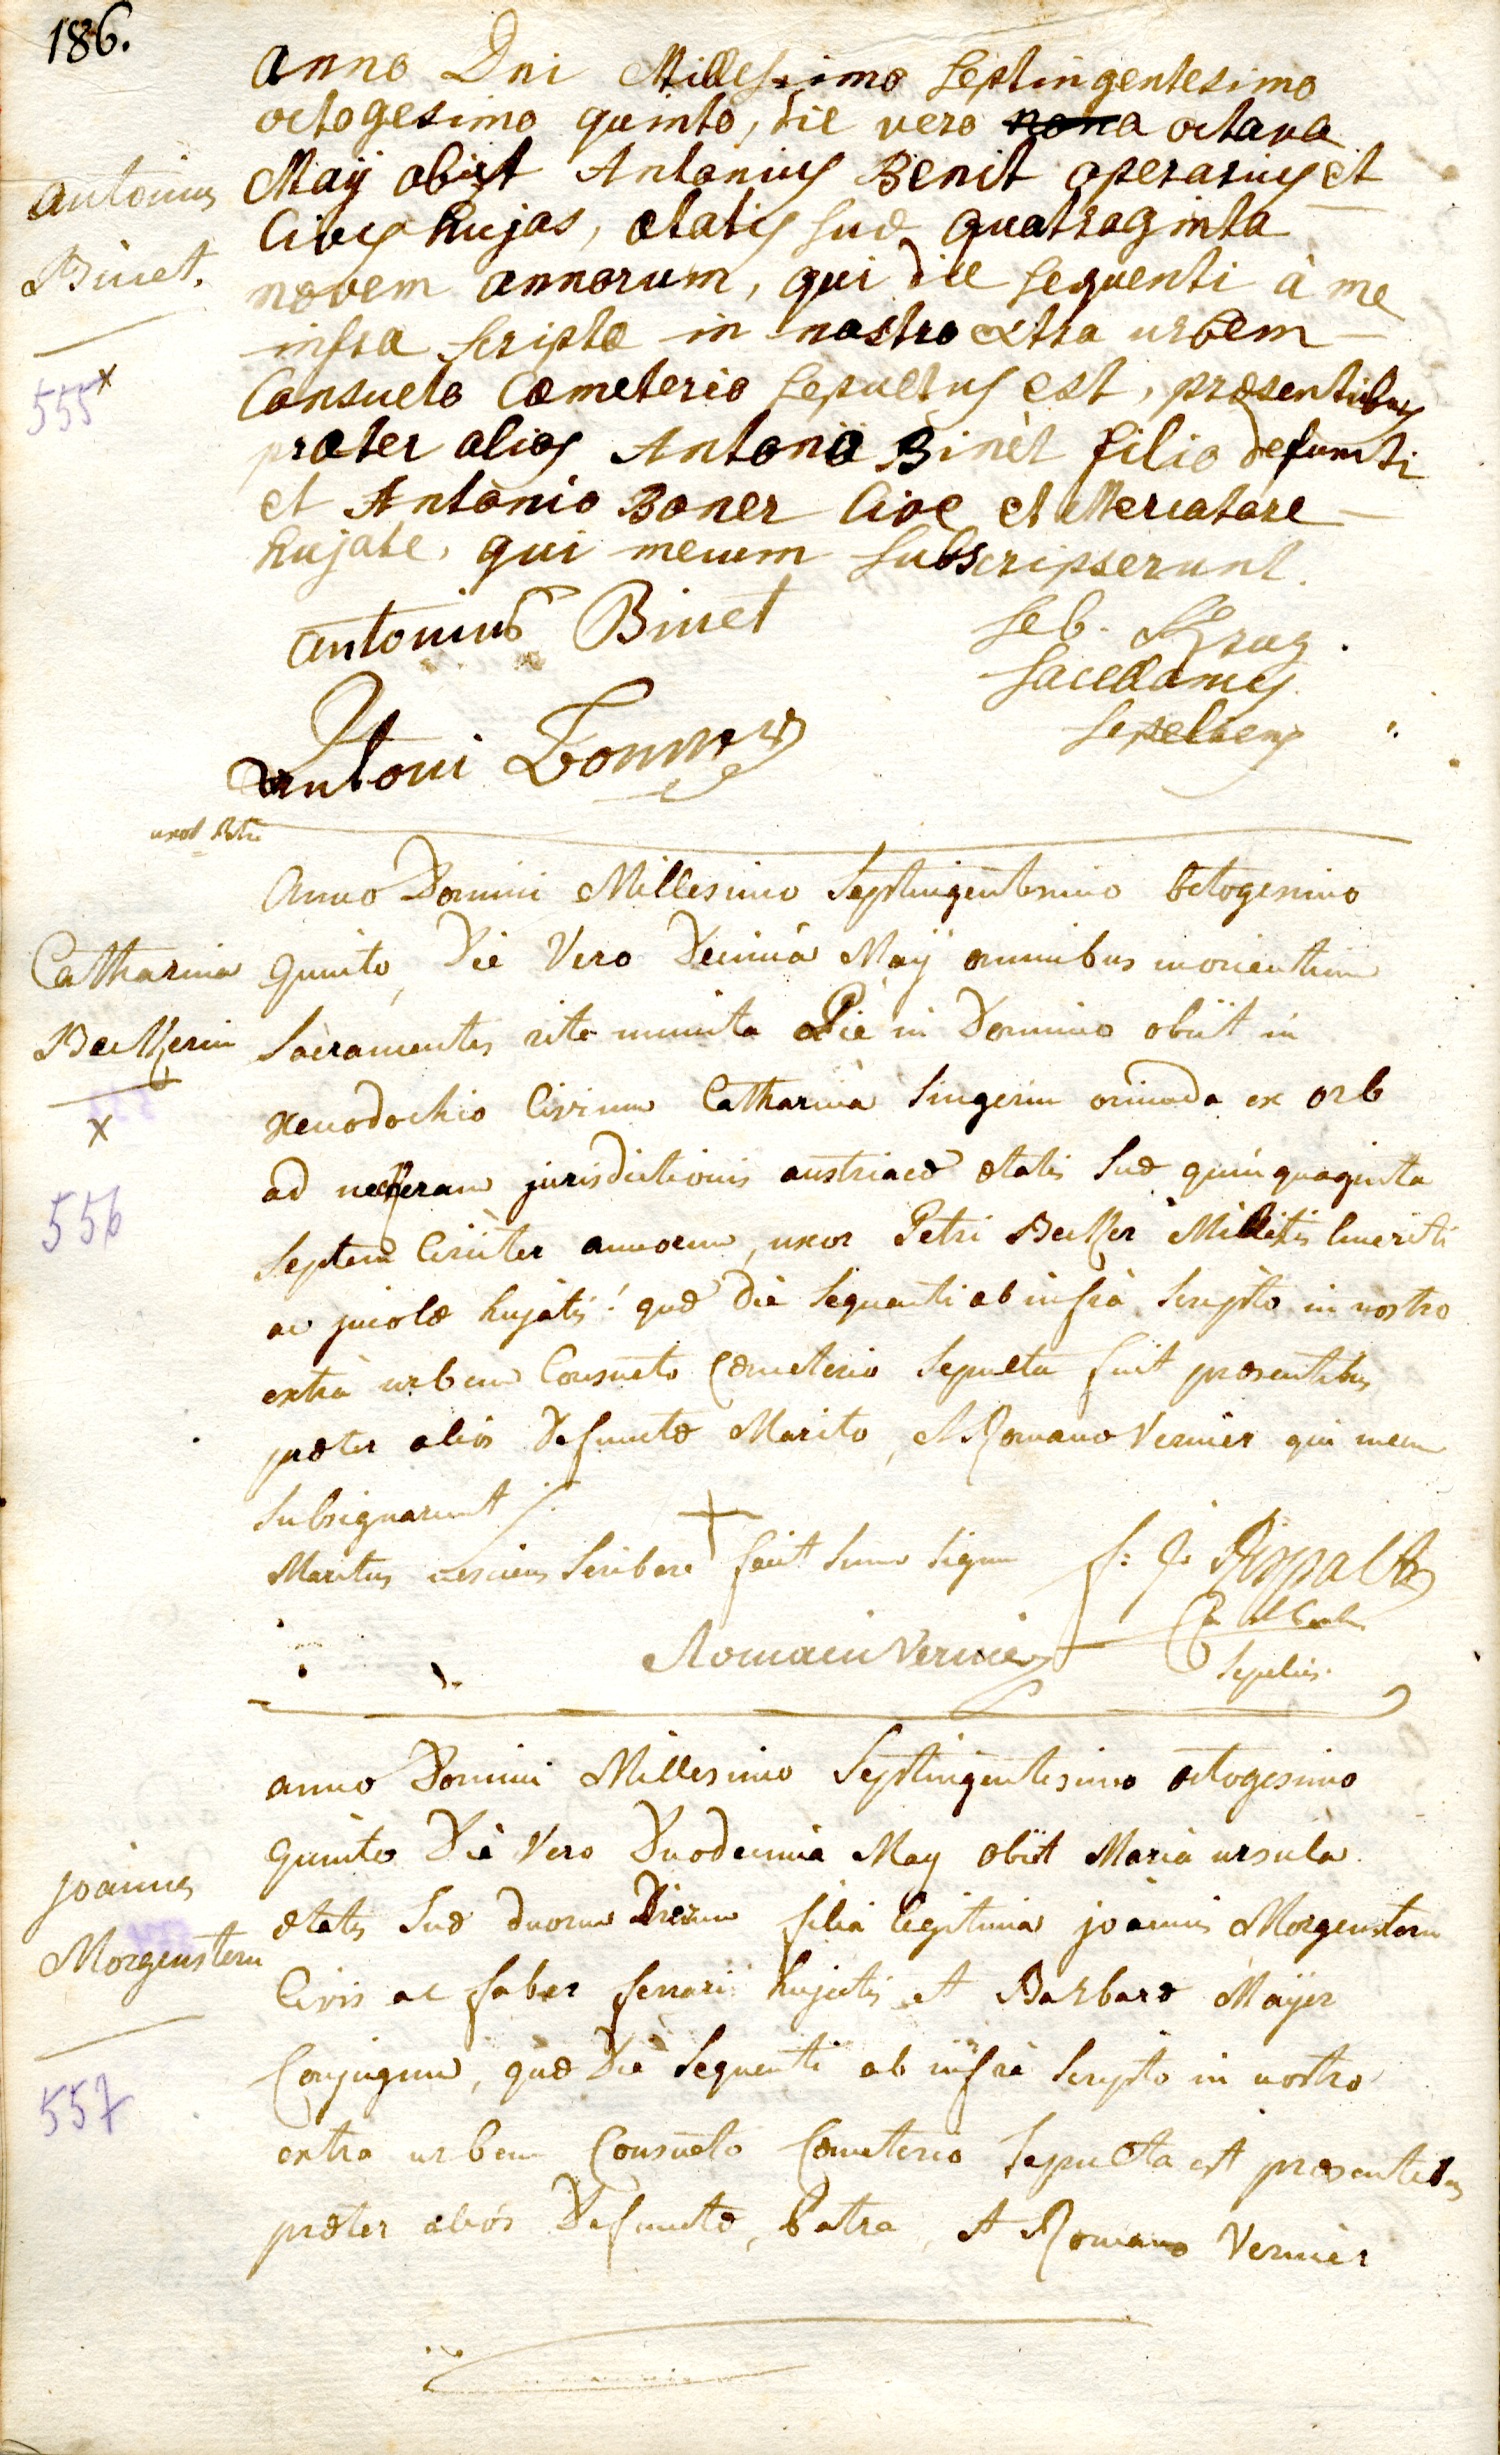 186.
Anno Dni Millesimo Septingentesimo
octogesimo quinto, die vero nona octava
Maÿ obijt Antonius Benit operarius et
Civis hujas, ætatis suæ quatraginta
novem annorum, qui die sequenti à me
infra scripto in nostro extra urbem
Consueto Cœmeterio sepultus est, præsentibus
præter alios Antonio Binèt filio defuncti
et Antònio Boner Cive et Mercatore
hujate, qui mecum subscripserunt.
Antonius
Binet.
555 x
Antonius Binet
Seb. Krug.
Sacellanus
Sepeliens
Antoni Bonner
uxor Petri
Anno Domini Millesimo Septingentesimo octogesimo
Quinto, Die Vero Decimà Maÿ omnibus morientium
Sacramentis rite munita Piè in Domino obiit in
Xenodochio Civium Catharina Singerin oriunda ex orb
ad neckeram jurisdictionis austriacæ ætatis Suæ quinquaginta
Septem Circiter annorum, uxor Petri Becker Militis Emeriti
ac incolæ hujatis: quæ Diè Sequenti ab infrà Scripto in nostro
extrà urbem Consueto Cœmeterio Sepulta fuit præsentibus
præter aliòs Defunctæ Marito, et Romano Vernier qui mecum
Subsignarunt
Catharina
Beckerin
x
556
Maritus nesciens Scribere fecit Suum Signum +
f: J: Rispalt
Sepeliens.
Romain Vernier
Anno Domini Millesimo Septingentesimo octogesimo
Quinto Diè Vero Duodecimà May obiit Maria ursula
ætatis Suæ duorum Dierum filia legitima joannis Morgenstern
Civis ac faber ferrarii hujatis et Barbaræ Maÿer
Conjugum, quæ Diè Sequenti ab infrà Scripto in nostro
extra urbem Consueto Cœmeterio Sepulta est præsentibus
præter aliòs Defunctæ, Patre, et Romano Vernier
joannes
Morgenstern
557